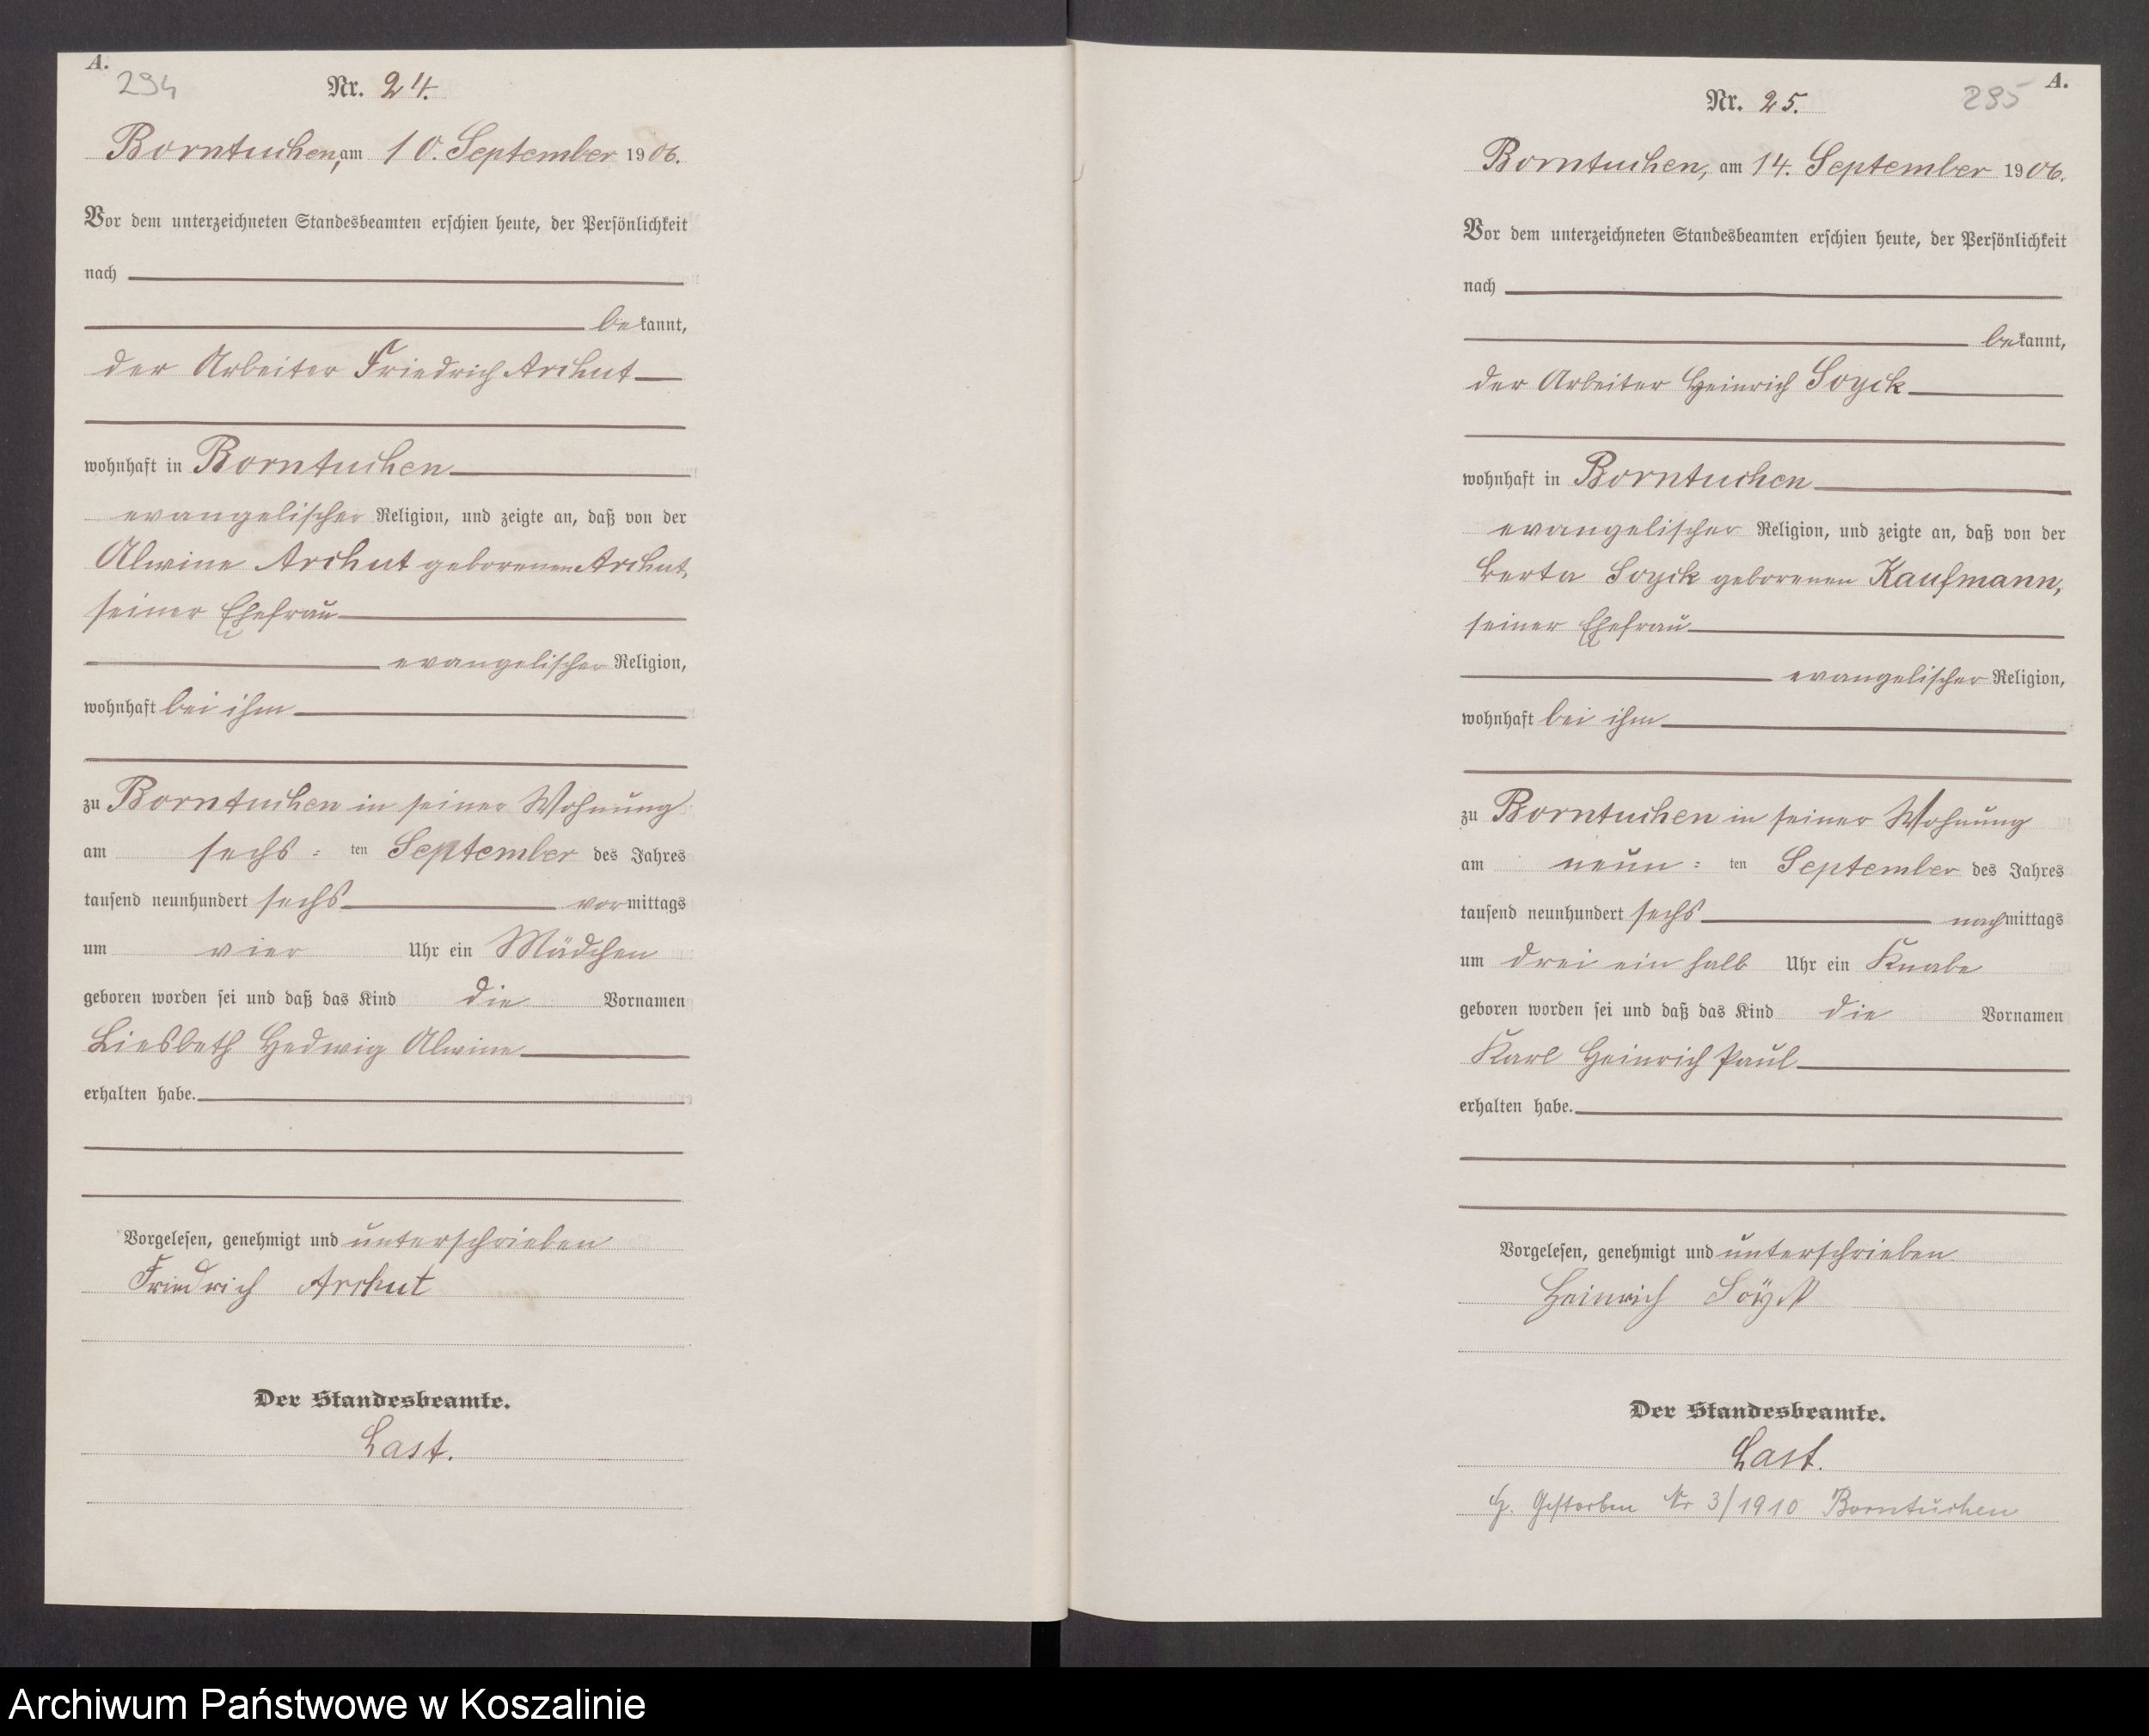 A.
294
Nr. 24.
Borntuchen, am 10. September 1906.
Vor dem unterzeichneten Standesbeamten erschien heute, der Persönlichkeit
nach
bekannt,
der Arbeiter Friedrich Archut
wohnhaft in Borntuchen
evangelischer Religion, und zeigte an, daß von der
Alwine Archut geborenen Archut,
seiner Ehefrau
evangelischer Religion,
wohnhaft bei ihm
zu Borntuchen in seiner Wohnung
am sechs=ten September des Jahres
tausend neunhundert sechs vormittags
um vier Uhr ein Mädchen
geboren worden sei und daß das Kind die Vornamen
Liesbeth Hedwig Alwine
erhalten habe.
Vorgelesen, genehmigt und unterschrieben
Friedrich Archut
Der Standesbeamte.
Last.
A.
295
Nr. 25.
Borntuchen, am 14. September 1906.
Vor dem unterzeichneten Standesbeamten erschien heute, der Persönlichkeit
nach
bekannt,
der Arbeiter Heinrich Soyck
wohnhaft in Borntuchen
evangelischer Religion, und zeigte an, daß von der
Berta Soyck geborenen Kaufmann,
seiner Ehefrau
evangelischer Religion,
wohnhaft bei ihm
zu Borntuchen in seiner Wohnung
am neun=ten September des Jahres
tausend neunhundert sechs nachmittags
um drei ein halb Uhr ein Knabe
geboren worden sei und daß das Kind die Vornamen
Karl Heinrich Paul
erhalten habe.
Vorgelesen, genehmigt und unterschrieben
Heinrich
Der Standesbeamte.
Last.
Gestorben Nr 3/1910 Borntuchen
Archiwum Państwowe w Koszalinie